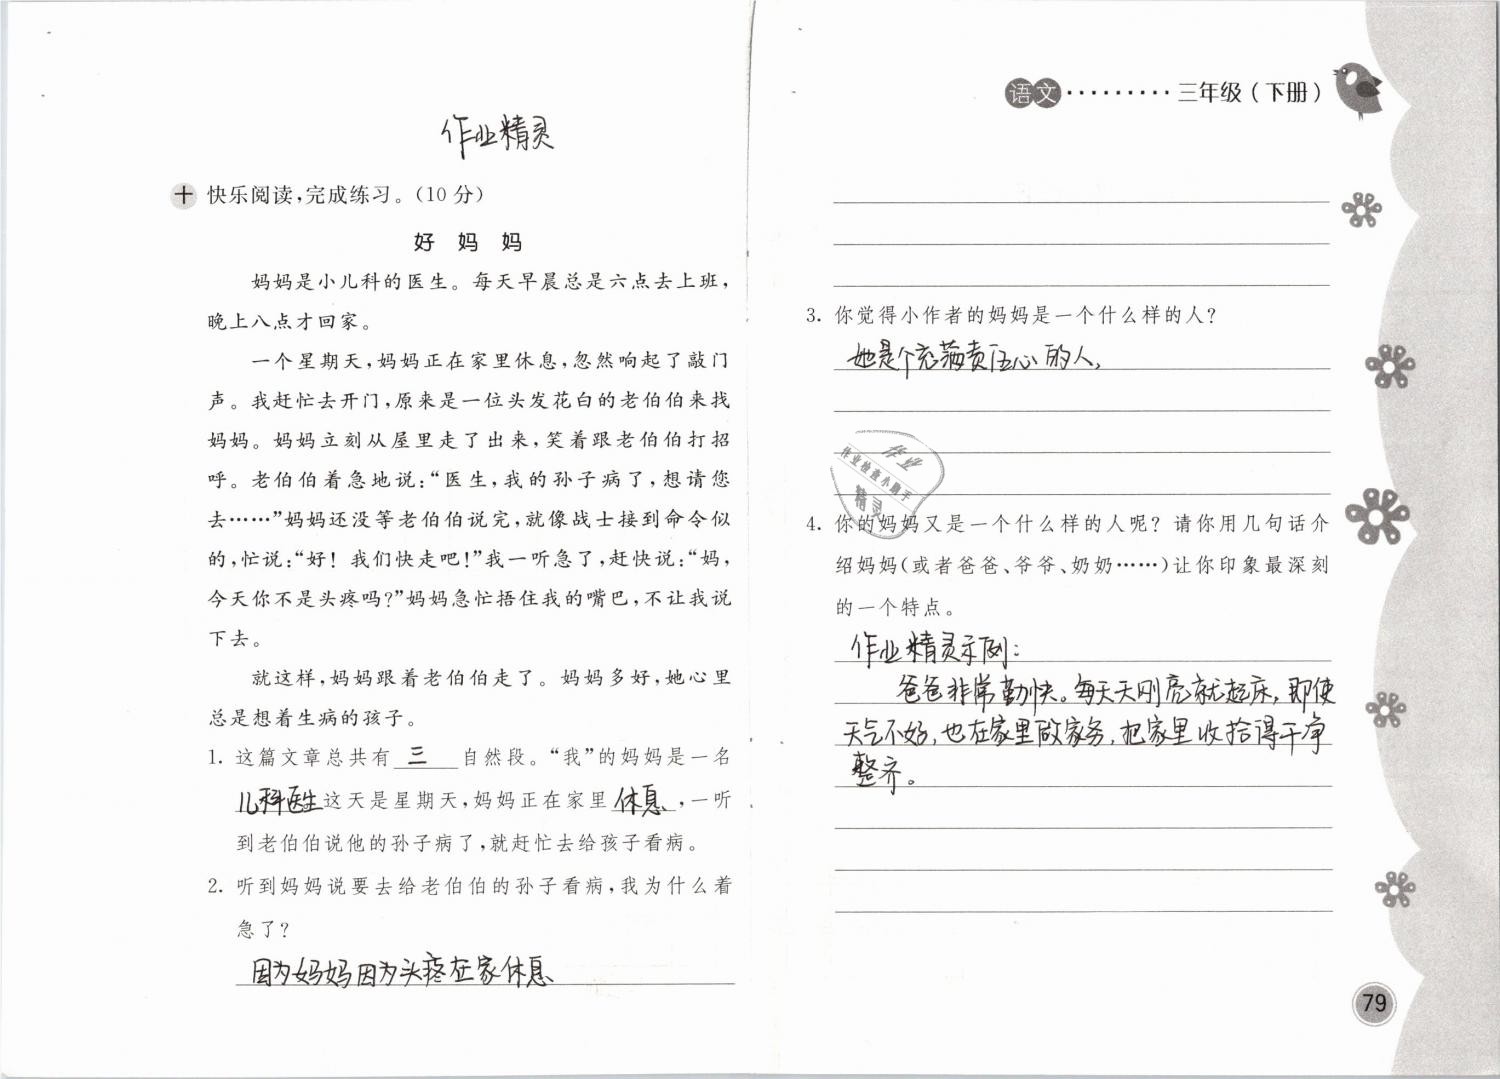 作业精灵
十 快乐阅读,完成练习。(10 分)
好 妈 妈
妈妈是小儿科的医生。每天早晨总是六点去上班,
晚上八点才回家。
一个星期天,妈妈正在家里休息,忽然响起了敲门
声。我赶忙去开门,原来是一位头发花白的老伯伯来找
妈妈。妈妈立刻从屋里走了出来,笑着跟老伯伯打招
呼。老伯伯着急地说:“医生,我的孙子病了,想请您
去……”妈妈还没等老伯伯说完,就像战士接到命令似
的,忙说:“好！我们快走吧!”我一听急了,赶快说:“妈,
今天你不是头疼吗?”妈妈急忙捂住我的嘴巴,不让我说
下去。
就这样,妈妈跟着老伯伯走了。妈妈多好,她心里
总是想着生病的孩子。
1. 这篇文章总共有 三 自然段。“我”的妈妈是一名
儿科医生这天是星期天,妈妈正在家里 休息 ,一听
到老伯伯说他的孙子病了,就赶忙去给孩子看病。
2. 听到妈妈说要去给老伯伯的孙子看病,我为什么着
急了?
因为妈妈因为头疼在家休息
语文·········三年级(下册)
3. 你觉得小作者的妈妈是一个什么样的人?
她是个充满责任心的人,
作业
作业检查小助手
精灵
4. 你的妈妈又是一个什么样的人呢? 请你用几句话介
绍妈妈(或者爸爸、爷爷、奶奶……)让你印象最深刻
的一个特点。
作业精灵示例:
爸爸非常勤快。每天天刚亮就起床,即使
天气不好,也在家里做家务,把家里收拾得干净
整齐。
79